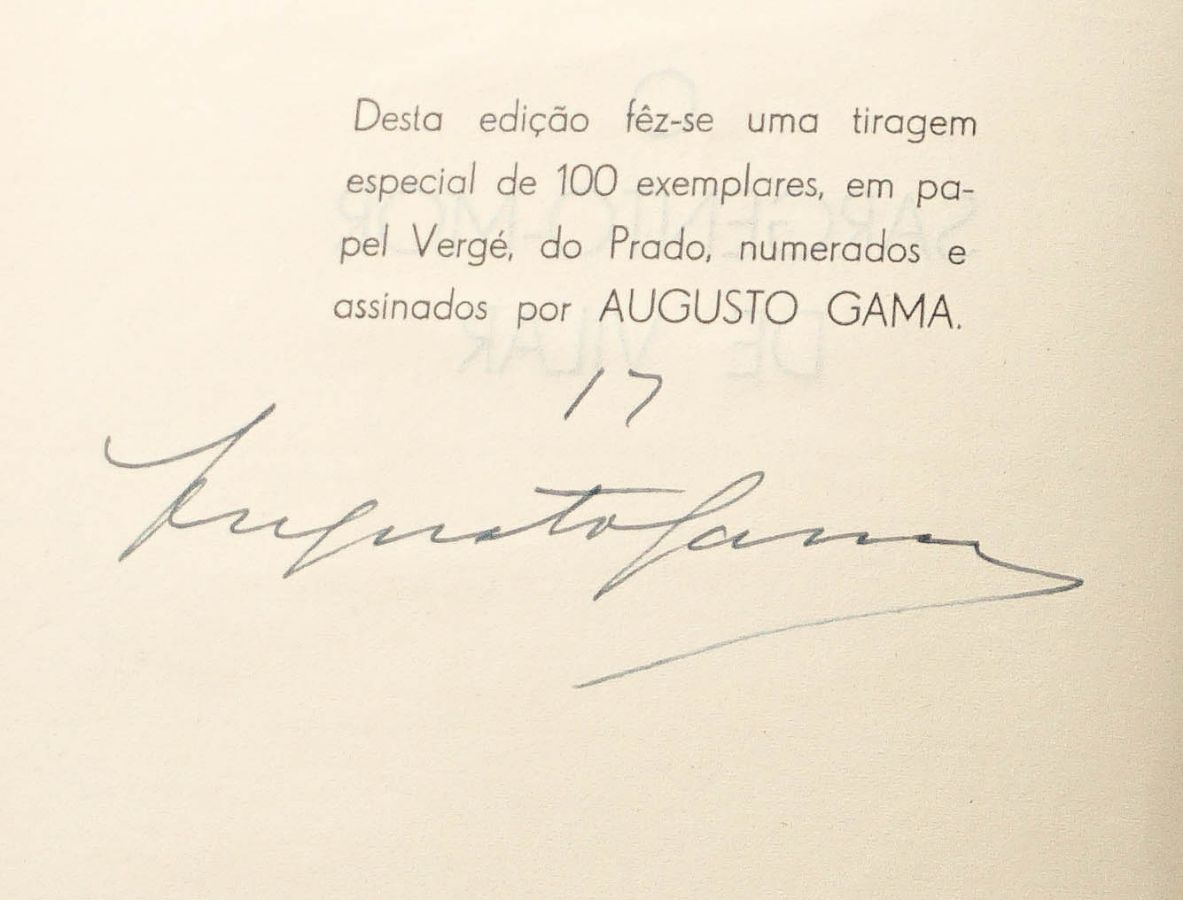 Desta edição fêz-se uma tiragem
especial de 100 exemplares, em pa-
pel Vergé, do Prado, numerados e
assinados por AUGUSTO GAMA.
17
Augusto Gama
O
SARGENTO-MOR
DE VILAR